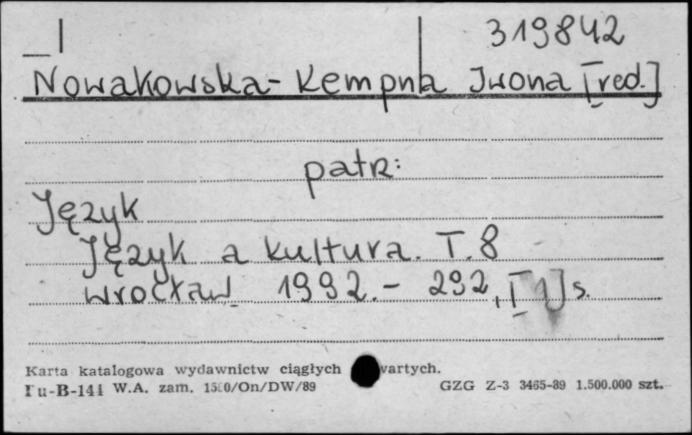 319842
Nowakowska-Kempna Iwona [red.]
patrz:
Język
Język a kultura. T. 8
Wrocław 1992.- 292, [1] s.
Karta katalogowa wydawnictw ciągłych wartych.
Pu-B-144 W.A. zam. 1510/On/DW/89 GZG Z-3 3465-89 1.500.000 szt.